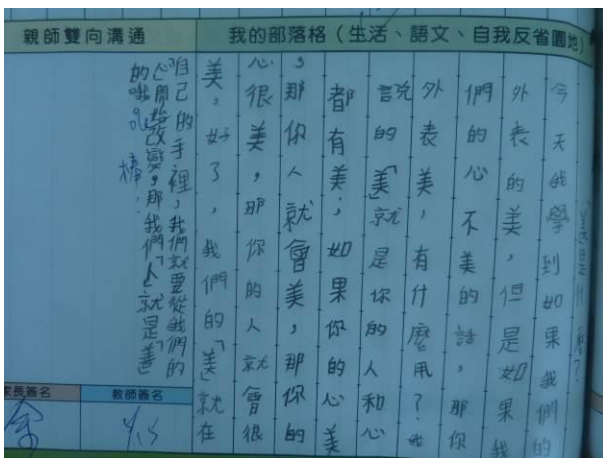 親師雙向溝通
我的部落格（生活、語文、自我反省園地）
美是什麼？
今天我學到如果我們的
外表的美，但是如果我
們的心不美的話，那你
外表美，有什麼用？我
說的「美」就是你的人和心
都有美；如果你的心美
，那你人就會美，那你的
心很美，那你的人就會很
美，好了，我們的「美」就在
自己的手裡，我們就要從我們的
「心」開始改變，那我們「人」就是「善」
的啦！
棒！
家長簽名
教師簽名